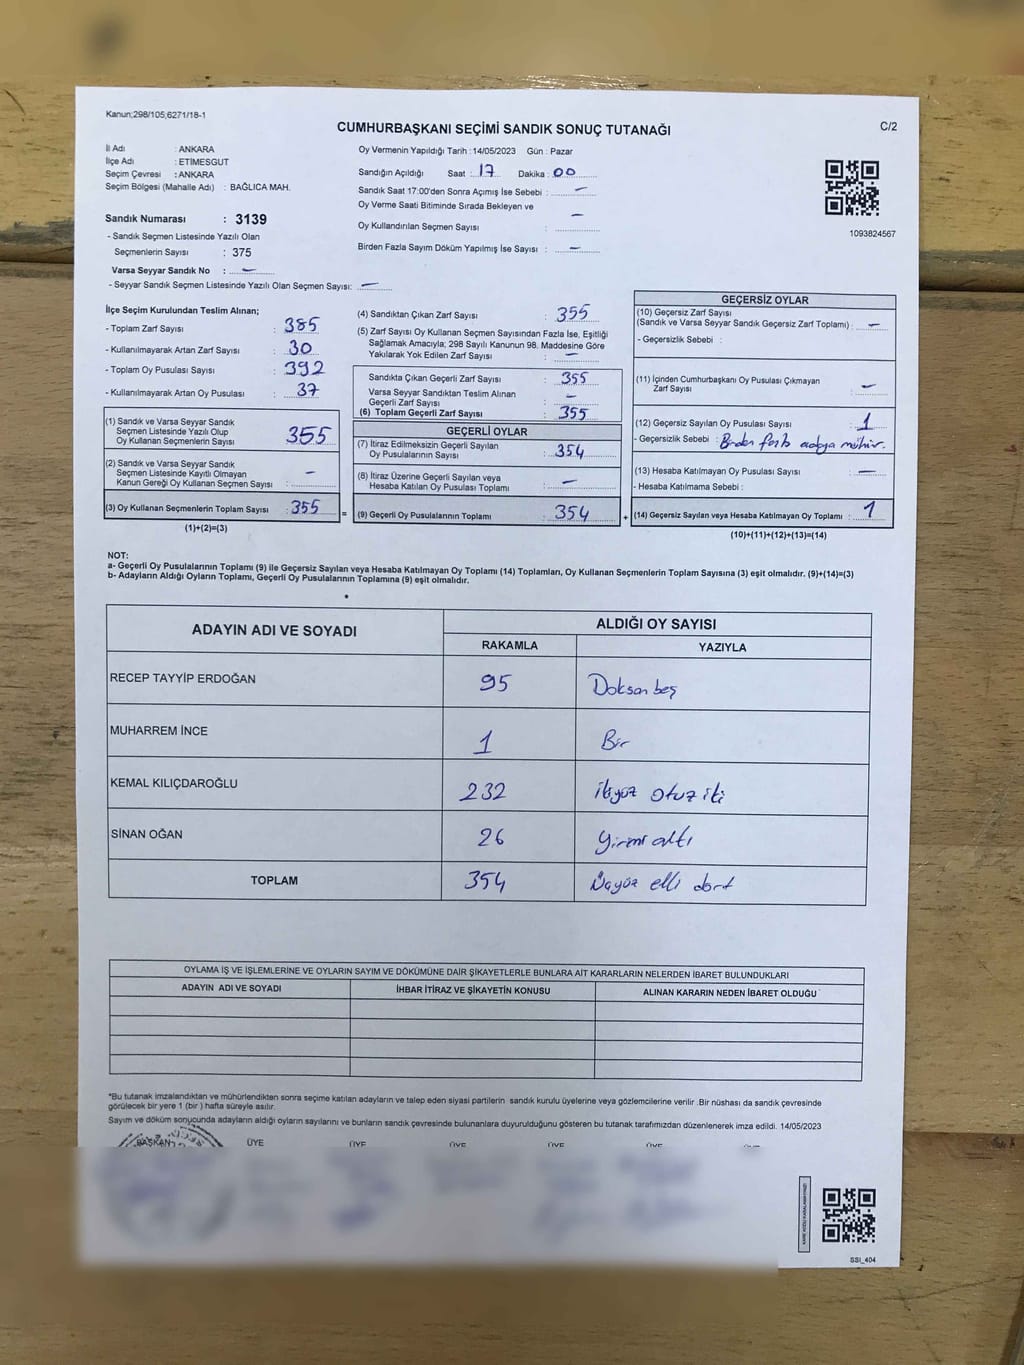 Kanun;298/105,6271/18-1
CUMHURBAŞKANI SEÇİMİ SANDIK SONUÇ TUTANAĞI
C/2
İl Adı : ANKARA
İlçe Adı : ETİMESGUT
Seçim Çevresi : ANKARA
Seçim Bölgesi (Mahalle Adı) : BAĞLICA MAH.
Sandık Numarası : 3139
- Sandık Seçmen Listesinde Yazılı Olan
Seçmenlerin Sayısı : 375
Varsa Seyyar Sandık No : —
- Seyyar Sandık Seçmen Listesinde Yazılı Olan Seçmen Sayısı: —
Oy Vermenin Yapıldığı Tarih : 14/05/2023 Gün : Pazar
Sandığın Açıldığı Saat : 17 Dakika : 00
Sandık Saat 17:00'den Sonra Açımış İse Sebebi : —
Oy Verme Saati Bitiminde Sırada Bekleyen ve
Oy Kullandırılan Seçmen Sayısı : —
Birden Fazla Sayım Döküm Yapılmış İse Sayısı : —
1093824567
İlçe Seçim Kurulundan Teslim Alınan;
- Toplam Zarf Sayısı : 385
- Kullanılmayarak Artan Zarf Sayısı : 30
- Toplam Oy Pusulası Sayısı : 392
- Kullanılmayarak Artan Oy Pusulası : 37
(1) Sandık ve Varsa Seyyar Sandık
Seçmen Listesinde Yazılı Olup
Oy Kullanan Seçmenlerin Sayısı 355
(2) Sandık ve Varsa Seyyar Sandık
Seçmen Listesinde Kayıtlı Olmayan
Kanun Gereği Oy Kullanan Seçmen Sayısı : —
(3) Oy Kullanan Seçmenlerin Toplam Sayısı : 355
(1)+(2)=(3)
(4) Sandıktan Çıkan Zarf Sayısı : 355
(5) Zarf Sayısı Oy Kullanan Seçmen Sayısından Fazla İse, Eşitliği
Sağlamak Amacıyla; 298 Sayılı Kanunun 98. Maddesine Göre
Yakılarak Yok Edilen Zarf Sayısı : —
Sandıkta Çıkan Geçerli Zarf Sayısı : 355
Varsa Seyyar Sandıktan Teslim Alınan
Geçerli Zarf Sayısı : —
(6) Toplam Geçerli Zarf Sayısı : 355
GEÇERLİ OYLAR
(7) İtiraz Edilmeksizin Geçerli Sayılan
Oy Pusulalarının Sayısı : 354
(8) İtiraz Üzerine Geçerli Sayılan veya
Hesaba Katılan Oy Pusulası Toplamı : —
= (9) Geçerli Oy Pusulalarının Toplamı : 354 +
GEÇERSİZ OYLAR
(10) Geçersiz Zarf Sayısı
(Sandık ve Varsa Seyyar Sandık Geçersiz Zarf Toplamı) : —
- Geçersizlik Sebebi :
(11) İçinden Cumhurbaşkanı Oy Pusulası Çıkmayan
Zarf Sayısı : —
(12) Geçersiz Sayılan Oy Pusulası Sayısı : 1
- Geçersizlik Sebebi : Birden fazla adaya mühür.
(13) Hesaba Katılmayan Oy Pusulası Sayısı : —
- Hesaba Katılmama Sebebi :
(14) Geçersiz Sayılan veya Hesaba Katılmayan Oy Toplamı : 1
(10)+(11)+(12)+(13)=(14)
NOT:
a- Geçerli Oy Pusulalarının Toplamı (9) ile Geçersiz Sayılan veya Hesaba Katılmayan Oy Toplamı (14) Toplamları, Oy Kullanan Seçmenlerin Toplam Sayısına (3) eşit olmalıdır. (9)+(14)=(3)
b- Adayların Aldığı Oyların Toplamı, Geçerli Oy Pusulalarının Toplamına (9) eşit olmalıdır.
ADAYIN ADI VE SOYADI ALDIĞI OY SAYISI
RAKAMLA YAZIYLA
RECEP TAYYİP ERDOĞAN 95 Doksan beş
MUHARREM İNCE 1 Bir
KEMAL KILIÇDAROĞLU 232 ikiyüz otuz iki
SİNAN OĞAN 26 Yirmi altı
TOPLAM 354 Üçyüz elli dört
OYLAMA İŞ VE İŞLEMLERİNE VE OYLARIN SAYIM VE DÖKÜMÜNE DAİR ŞİKAYETLERLE BUNLARA AİT KARARLARIN NELERDEN İBARET BULUNDUKLARI
ADAYIN ADI VE SOYADI İHBAR İTİRAZ VE ŞİKAYETİN KONUSU ALINAN KARARIN NEDEN İBARET OLDUĞU
*Bu tutanak imzalandıktan ve mühürlendikten sonra seçime katılan adayların ve talep eden siyasi partilerin sandık kurulu üyelerine veya gözlemcilerine verilir .Bir nüshası da sandık çevresinde
görülecek bir yere 1 (bir ) hafta süreyle asılır.
Sayım ve döküm sonucunda adayların aldığı oyların sayılarını ve bunların sandık çevresinde bulunanlara duyurulduğunu gösteren bu tutanak tarafımızdan düzenlenerek imza edildi. 14/05/2023
BAŞKAN ÜYE ÜYE ÜYE ÜYE ÜYE
SSI_404